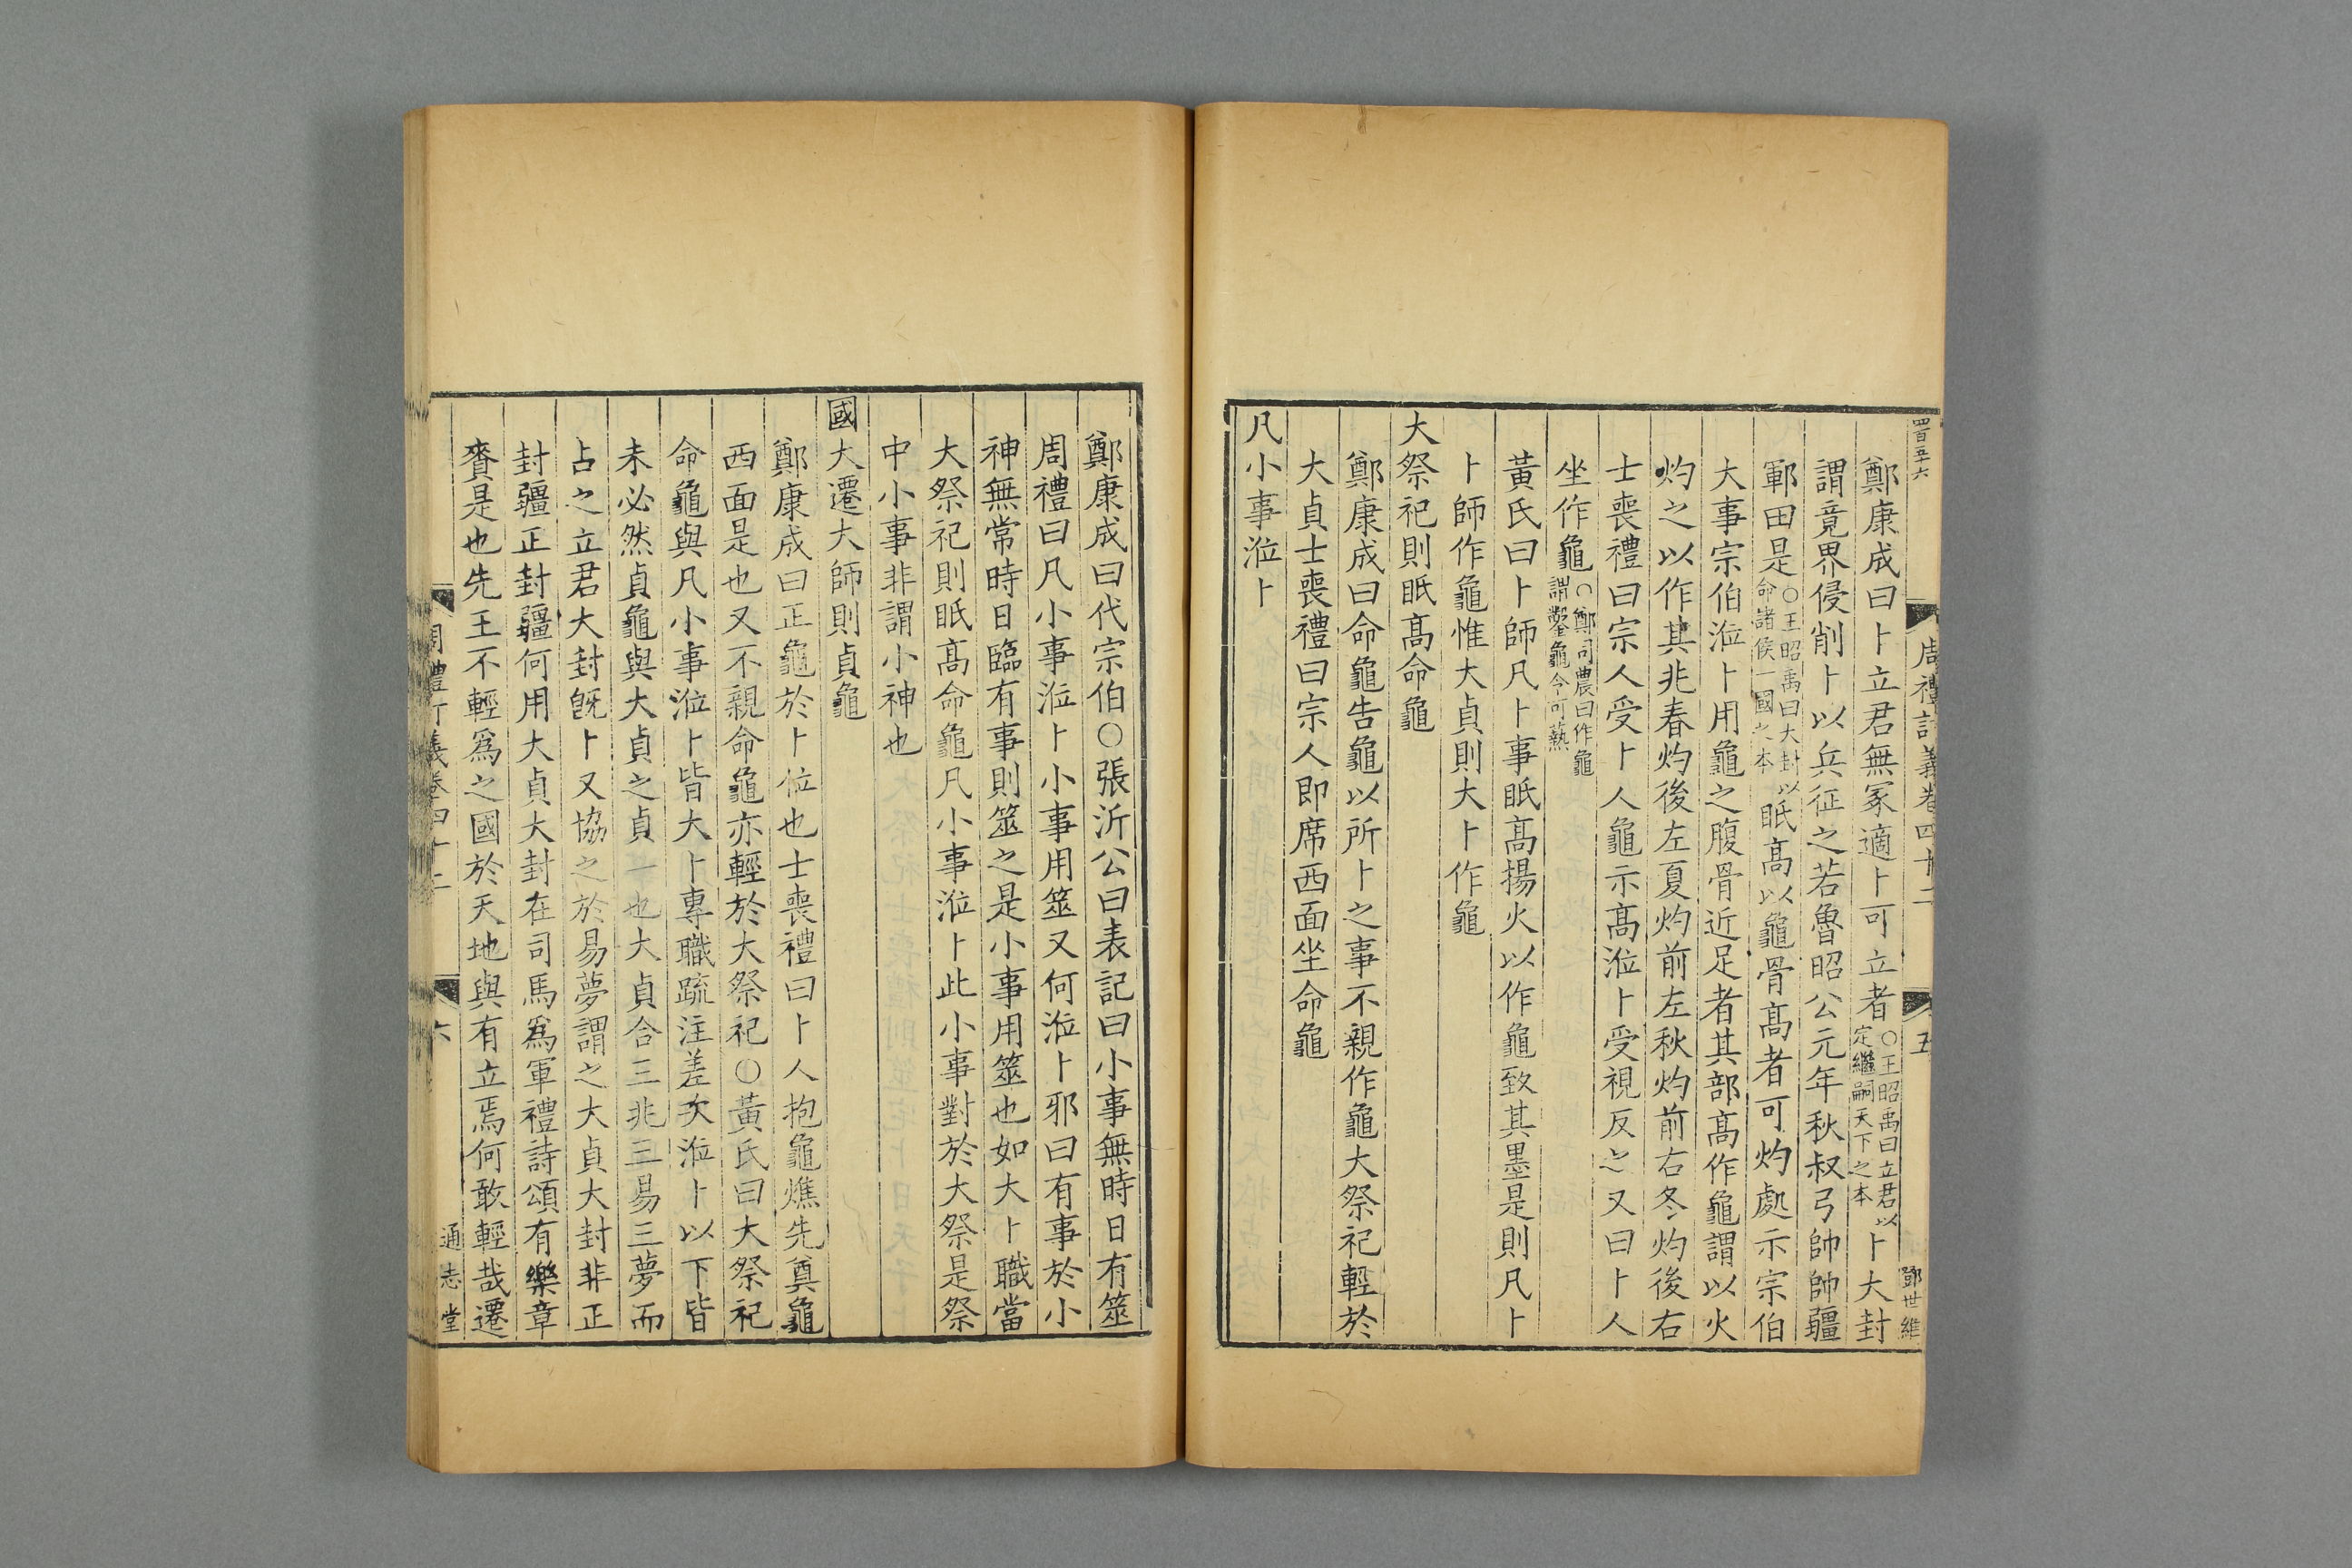 四百五十六
周禮訂義卷四十二
五
鄧世維
鄭康成曰卜立君無冢適卜可立者○王昭禹曰立君以定繼嗣天下之本卜大封
謂竟界侵削卜以兵征之若魯昭公元年秋叔弓帥師疆
鄆田是○王昭禹曰大封以命諸侯一國之本眡髙以龜骨髙者可灼處示宗伯
大事宗伯涖卜用龜之腹骨近足者其部髙作龜謂以火
灼之以作其兆春灼後左夏灼前左秋灼前右冬灼後右
士喪禮曰宗人受卜人龜示髙涖卜受視反之又曰卜人
坐作龜○鄭司農曰作龜謂鑿龜令可爇
黃氏曰卜師凡卜事眡髙揚火以作龜致其墨是則凡卜
卜師作龜惟大貞則大卜作龜
大祭祀則眡髙命龜
鄭康成曰命龜告龜以所卜之事不親作龜大祭祀輕於
大貞士喪禮曰宗人即席西面坐命龜
凡小事涖卜
鄭康成曰代宗伯○張沂公曰表記曰小事無時日有筮
周禮曰凡小事涖卜小事用筮又何涖卜邪曰有事於小
神無常時日臨有事則筮之是小事用筮也如大卜職當
大祭祀則眡髙命龜凡小事涖卜此小事對於大祭是祭
中小事非謂小神也
國大遷大師則貞龜
鄭康成曰正龜於卜位也士喪禮曰卜人抱龜燋先奠龜
西面是也又不親命龜亦輕於大祭祀○黃氏曰大祭祀
命龜與凡小事涖卜皆大卜專職疏注差次涖卜以下皆
未必然貞龜與大貞之貞一也大貞合三兆三易三夢而
占之立君大封旣卜又協之於易夢謂之大貞大封非正
封疆正封疆何用大貞大封在司馬爲軍禮詩頌有樂章
賚是也先王不輕爲之國於天地與有立焉何敢輕哉遷
周禮訂義卷四十二
六
通志堂